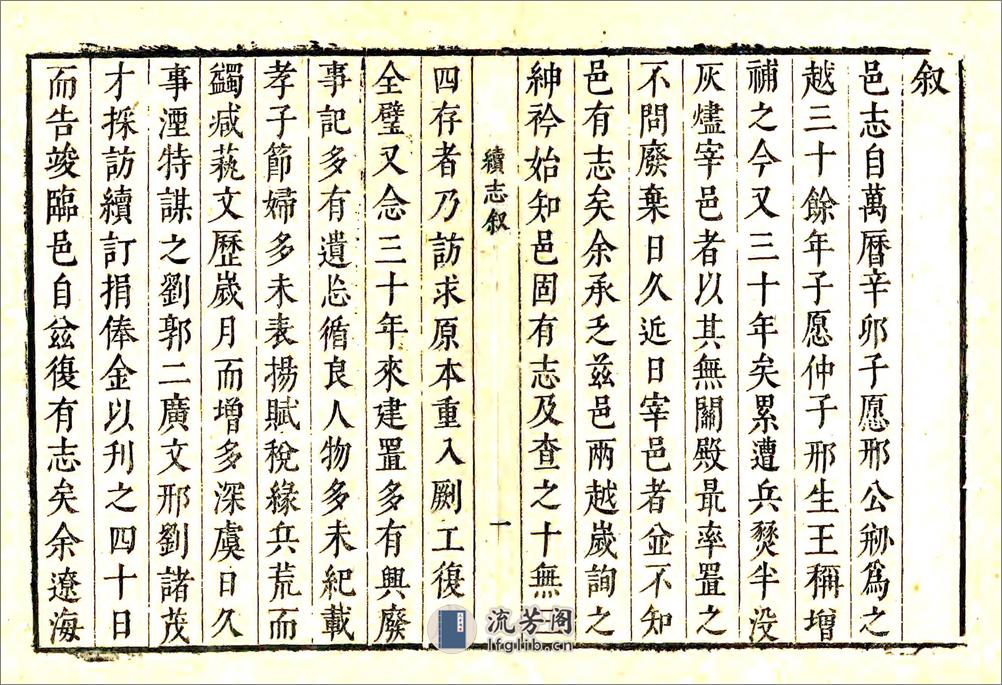 叙
邑志自萬曆辛卯子愿邢公刱爲之
越三十餘年子愿仲子邢生王稱增
補之今又三十年矣累遭兵燹半没
灰燼宰邑者以其無關殿最率置之
不問廢棄日久近日宰邑者並不知
邑有志矣余承乏兹邑兩越歲詢之
紳衿始知邑固有志及查之十無
續志叙
一
四存者乃訪求原本重入劂工復
全璧又念三十年來建置多有興廢
事記多有遺忘循良人物多未紀載
孝子節婦多未表揚賦稅緣兵荒而
蠲减藝文歷歲月而增多深虞日久
事湮特謀之劉郭二廣文邢劉諸茂
才採訪續訂捐俸金以刊之四十日
而告竣臨邑自兹復有志矣余遼海
流芳阁
lfglib.cn